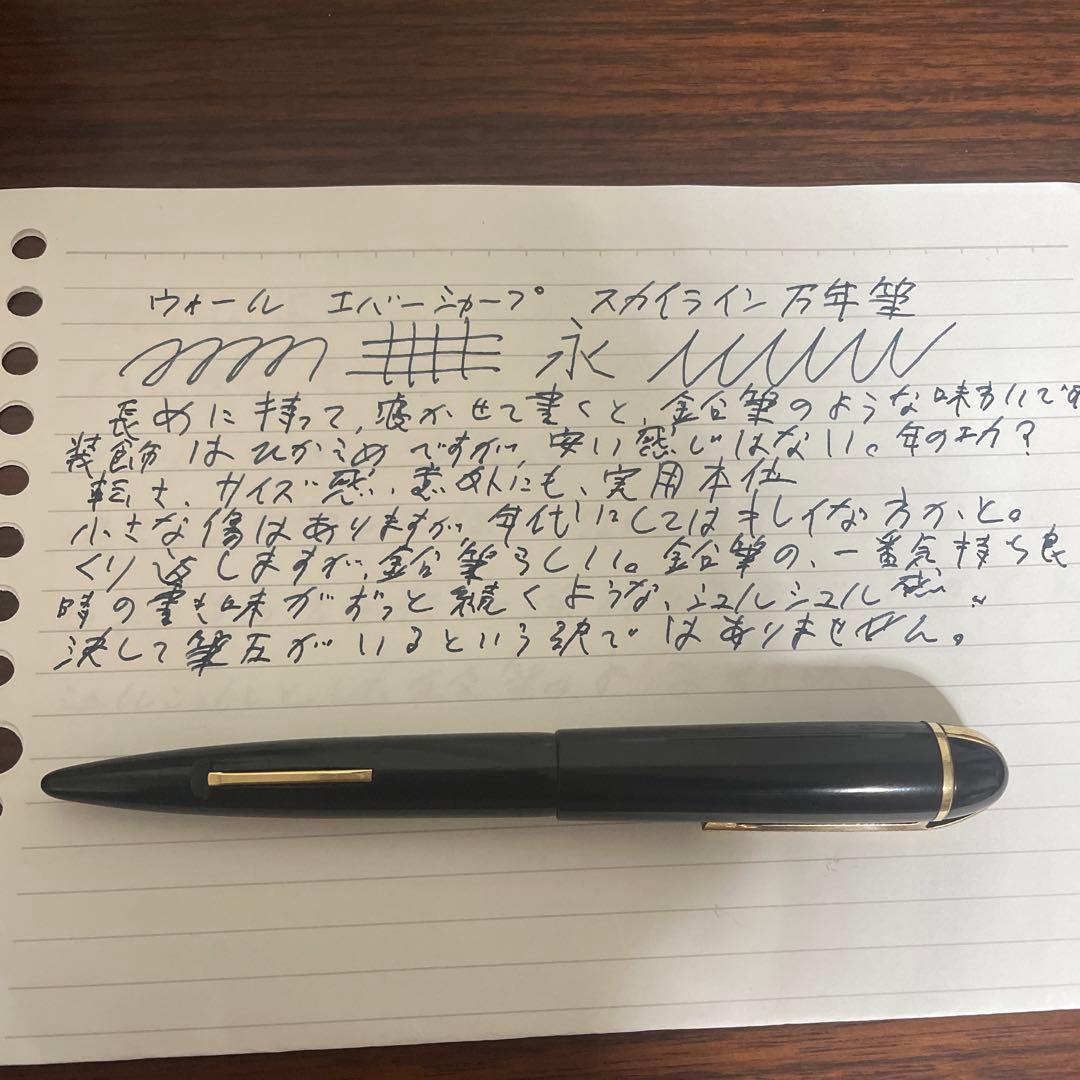 ウォール エバーシャープ スカイライン万年筆
永
長めに持って、寝かせて書くと、鉛筆のような味わいです
装飾はひかえめですが、安い感じはない。年の功?
軽さ、サイズ感、意外にも、実用本位
小さな傷はありますが、年代にしてはキレイな方かと。
くり返しますが、鉛筆らしい。鉛筆の、一番気持ち良
時の書き味がずっと続くような、シュルシュル感
決して筆圧がいるという訳ではありません。